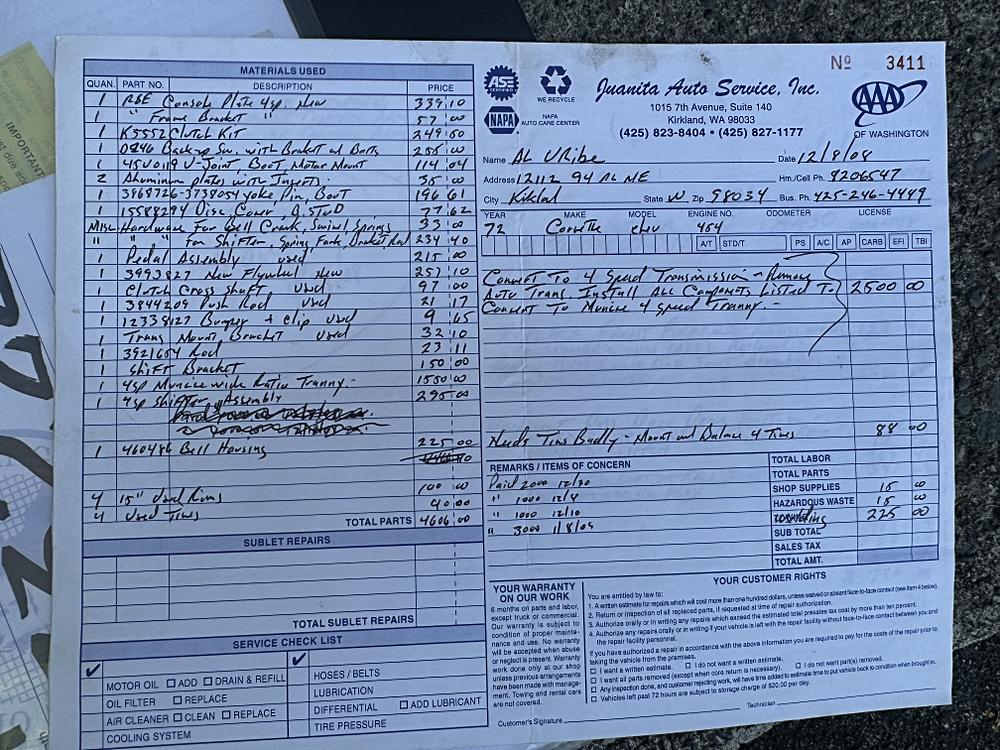 IMPORTANT
Nº 3411
MATERIALS USED
QUAN. PART NO. DESCRIPTION PRICE
1 RSE Console Plate 4sp. New 339 10
1 " Frame Bracket " 57 00
1 K5552 Clutch Kit 249 50
1 0846 Back-up Sw. with Bracket and Bolts 255 00
1 45U0119 U-Joint, Boot, Motor Mount 114 04
2 Aluminum Plates with Inserts 35 00
1 3968726-3738054 yoke, Pin, Boot 196 61
1 15588294 Disc, Cover, Q. STUD 77 62
Misc. Hardware For Bell Crank, Swivel Springs 33 00
" " For Shifter, Spring, Fork, Bracket, Rod 234 40
1 Pedal Assembly used 215 00
1 3993827 New Flywheel New 257 10
1 Clutch Cross Shaft, used 97 00
1 3844209 Push Rod used 21 17
1 12338127 Bumper + clip used 9 65
1 Trans Mount Bracket used 32 10
1 3921654 Rod 23 11
1 Shift Bracket 150 00
1 4sp Muncie wide Ratio Tranny. 1550 00
1 4sp Shifter Assembly 295 00
1 460486 Bell Housing 225 00
4 15" Used Rims 100 00
4 Used Tires 90 00
TOTAL PARTS 4606 00
SUBLET REPAIRS
TOTAL SUBLET REPAIRS
SERVICE CHECK LIST
MOTOR OIL ADD DRAIN & REFILL
OIL FILTER REPLACE
AIR CLEANER CLEAN REPLACE
COOLING SYSTEM
HOSES / BELTS
LUBRICATION
DIFFERENTIAL ADD LUBRICANT
TIRE PRESSURE
ASE CERTIFIED
WE RECYCLE
NAPA
NAPA AUTO CARE CENTER
Juanita Auto Service, Inc.
1015 7th Avenue, Suite 140
Kirkland, WA 98033
(425) 823-8404 • (425) 827-1177
AAA
OF WASHINGTON
Name AL URibe Date 12/8/08
Address 12112 94 PL NE Hm./Cell Ph. 9206547
City Kirklnd State W. Zip 98034 Bus. Ph. 425-246-4449
YEAR MAKE MODEL ENGINE NO. ODOMETER LICENSE
72 Corvette chev 454
A/T STD/T PS A/C AP CARB EFI TBI
Convert To 4 Speed Transmission - Remove
Auto Trans, Install ALL Components Listed To 2500 00
Convert To Muncie 4 speed Tranny.
Needs Tires Badly - Mount and Balance 4 Tires 88 00
REMARKS / ITEMS OF CONCERN
Paid 2000 12/30
" 1000 12/4
" 1000 12/10
" 3000 1/8/09
TOTAL LABOR
TOTAL PARTS
SHOP SUPPLIES 15 00
HAZARDOUS WASTE 15 00
Welding 225 00
SUB TOTAL
SALES TAX
TOTAL AMT.
YOUR WARRANTY ON OUR WORK
6 months on parts and labor, except truck or commercial. Our warranty is subject to condition of proper maintenance and use. No warranty will be accepted when abuse or neglect is present. Warranty work done only at our shop unless previous arrangements have been made with management. Towing and rental cars are not covered.
YOUR CUSTOMER RIGHTS
You are entitled by law to:
1. A written estimate for repairs which will cost more than one hundred dollars, unless waived or absent face-to-face contact (see item 4 below).
2. Return or inspection of all replaced parts, if requested at time of repair authorization.
3. Authorize orally or in writing any repairs which exceed the estimated total presales tax cost by more than ten percent.
4. Authorize any repairs orally or in writing if your vehicle is left with the repair facility without face-to-face contact between you and the repair facility personnel.
If you have authorized a repair in accordance with the above information you are required to pay for the costs of the repair prior to taking the vehicle from the premises.
I want a written estimate. I do not want a written estimate.
I want all parts removed (except when core return is necessary). I do not want part(s) removed.
Any inspection done, and customer rejecting work, will have time added to estimate time to put vehicle back to condition when brought in.
Vehicles left past 72 hours are subject to storage charge of $20.00 per day.
Customer's Signature Technician